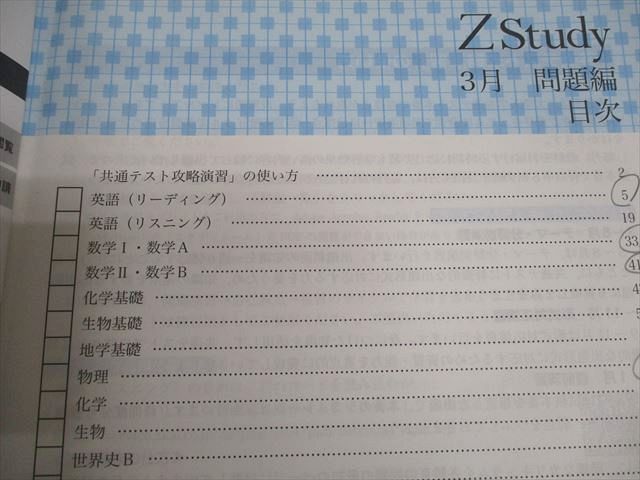 Z Study
3月 問題編
目次
「共通テスト攻略演習」の使い方 2
英語（リーディング） 5
英語（リスニング） 19
数学Ⅰ・数学A 33
数学Ⅱ・数学B 41
化学基礎 4
生物基礎
地学基礎
物理
化学
生物
世界史B